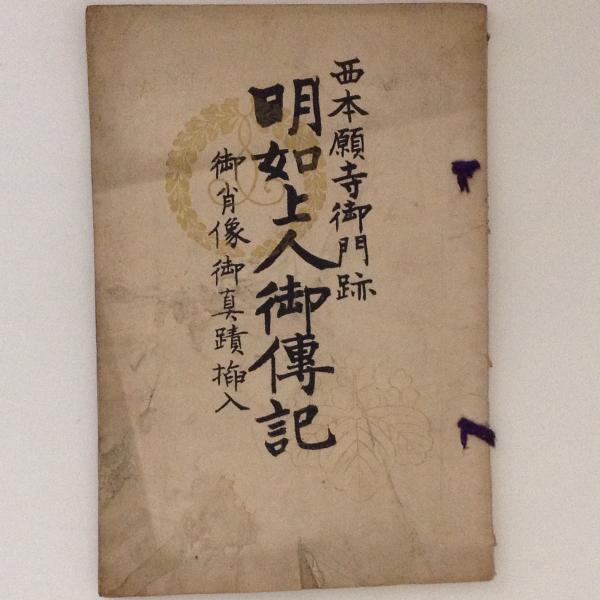 西本願寺御門跡
明如上人御傳記
御肖像御真蹟挿入